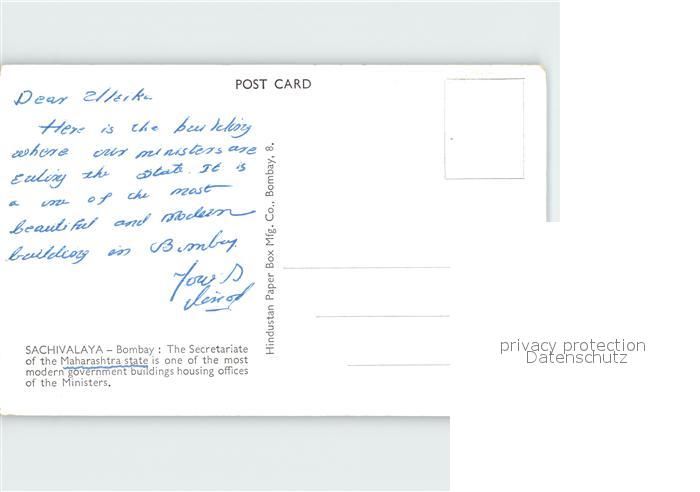 POST CARD
Dear Ulrika
Here is the building
where our ministers are
Ruling the state. It is
a one of the most
beautiful and modern
building in Bombay.
Yours
Vinod
SACHIVALAYA – Bombay : The Secretariate
of the Maharashtra state is one of the most
modern government buildings housing offices
of the Ministers.
Hindustan Paper Box Mfg. Co., Bombay, 8.
privacy protection
Datenschutz